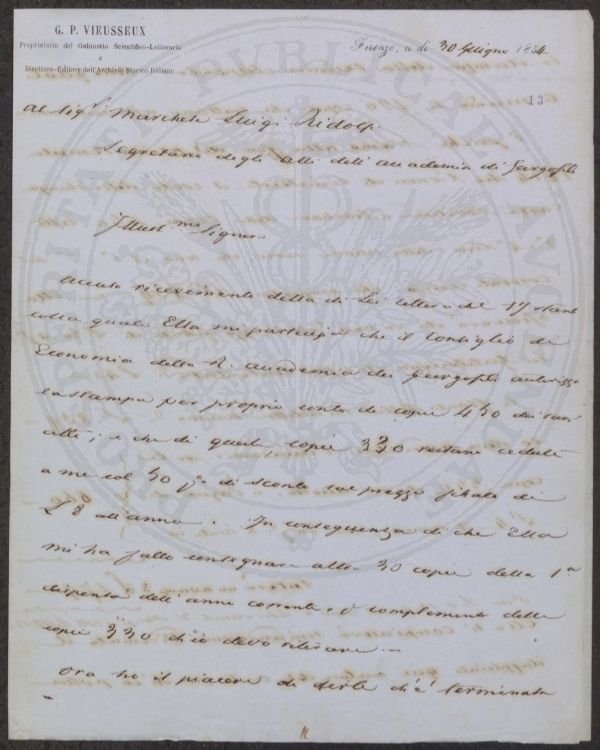 G. P. VIEUSSEUX
Proprietario del Gabinetto Scientifico-Letterario
e
Direttore-Editore dell'Archivio Storico Italiano
Firenze, a dì 30 Giugno 1854
13
Al Sigr Marchese Luigi Ridolfi
Segretario degli Atti dell'Accademia dei Georgofili
Illustmo Signore
Accuso ricevimento della di Lei lettera del 17
colla quale Ella mi partecipa che il Consiglio di
Economia della R. Accademia dei Georgofili autorizza
la stampa per proprio conto di copie 450 dei suoi
atti; e che di queste copie 330 restano cedute
a me col 30 p% di sconto sul prezzo fissato di
£ 8 all'anno. In conseguenza di che Ella
mi ha fatto consegnare altre 30 copie della 1a
dispensa dell'anno corrente, a complemento delle
copie 330 ch'io devo ritirare.
Ora ho il piacere di dirle ch'è terminata
PROSPERITATI PUBLICAE